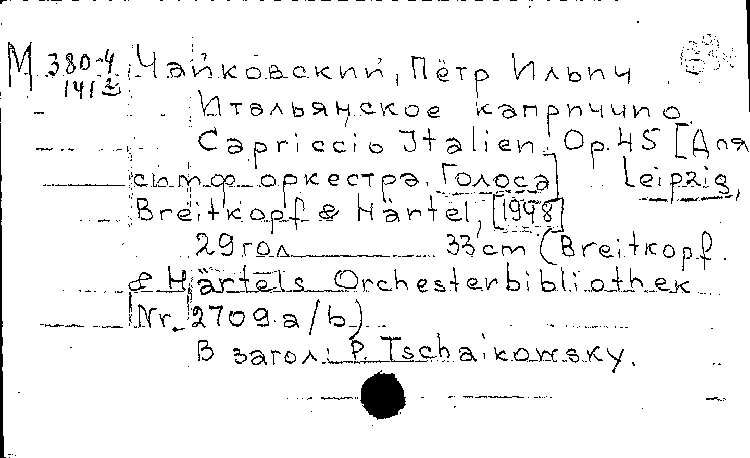 М 380-4 Чайковский, Пётр Ильич
141 Итальянское каприччио.
Capriccio Italien. Op. 45 [Для
симф. оркестра. Голоса] Leipzig,
Breitkopf & Härtel, [1948]
29 гол 33 cm (Breitkopf
& Härtels Orchesterbibliothek
Nr. 2709 a/b)
В загол.: P. Tschaikowsky.